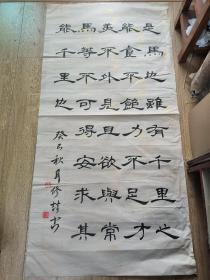 是馬也雖有千里之
能食不飽力不足才
美不外見且欲與常
馬等不可得安求其
能千里也
癸巳秋月